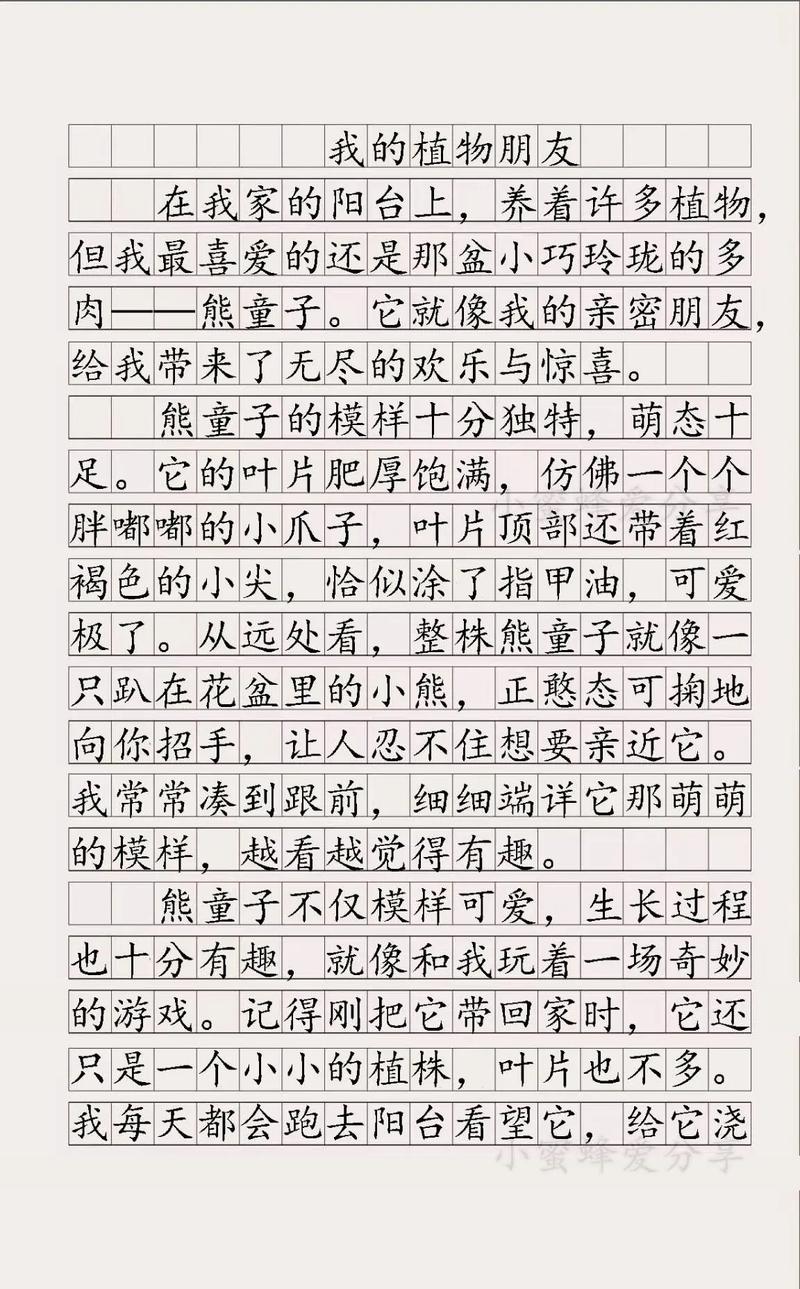 我的植物朋友
在我家的阳台上，养着许多植物，
但我最喜爱的还是那盆小巧玲珑的多
肉——熊童子。它就像我的亲密朋友，
给我带来了无尽的欢乐与惊喜。
熊童子的模样十分独特，萌态十
足。它的叶片肥厚饱满，仿佛一个个
小蜜蜂爱分享
胖嘟嘟的小爪子，叶片顶部还带着红
褐色的小尖，恰似涂了指甲油，可爱
极了。从远处看，整株熊童子就像一
只趴在花盆里的小熊，正憨态可掬地
向你招手，让人忍不住想要亲近它。
我常常凑到跟前，细细端详它那萌萌
的模样，越看越觉得有趣。
熊童子不仅模样可爱，生长过程
也十分有趣，就像和我玩着一场奇妙
的游戏。记得刚把它带回家时，它还
只是一个小小的植株，叶片也不多。
我每天都会跑去阳台看望它，给它浇
小蜜蜂爱分享